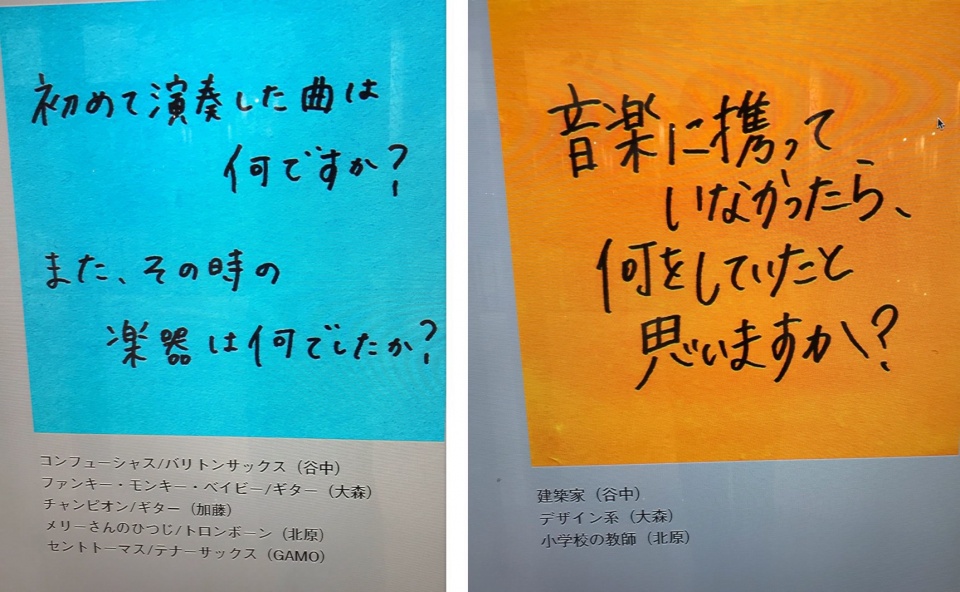 初めて演奏した曲は
何ですか?
また、その時の
楽器は何でしたか?
コンフューシャス/バリトンサックス（谷中）
ファンキー・モンキー・ベイビー/ギター（大森）
チャンピオン/ギター（加藤）
メリーさんのひつじ/トロンボーン（北原）
セントトーマス/テナーサックス（GAMO）
音楽に携って
いなかったら、
何をしていたと
思いますか?
建築家（谷中）
デザイン系（大森）
小学校の教師（北原）